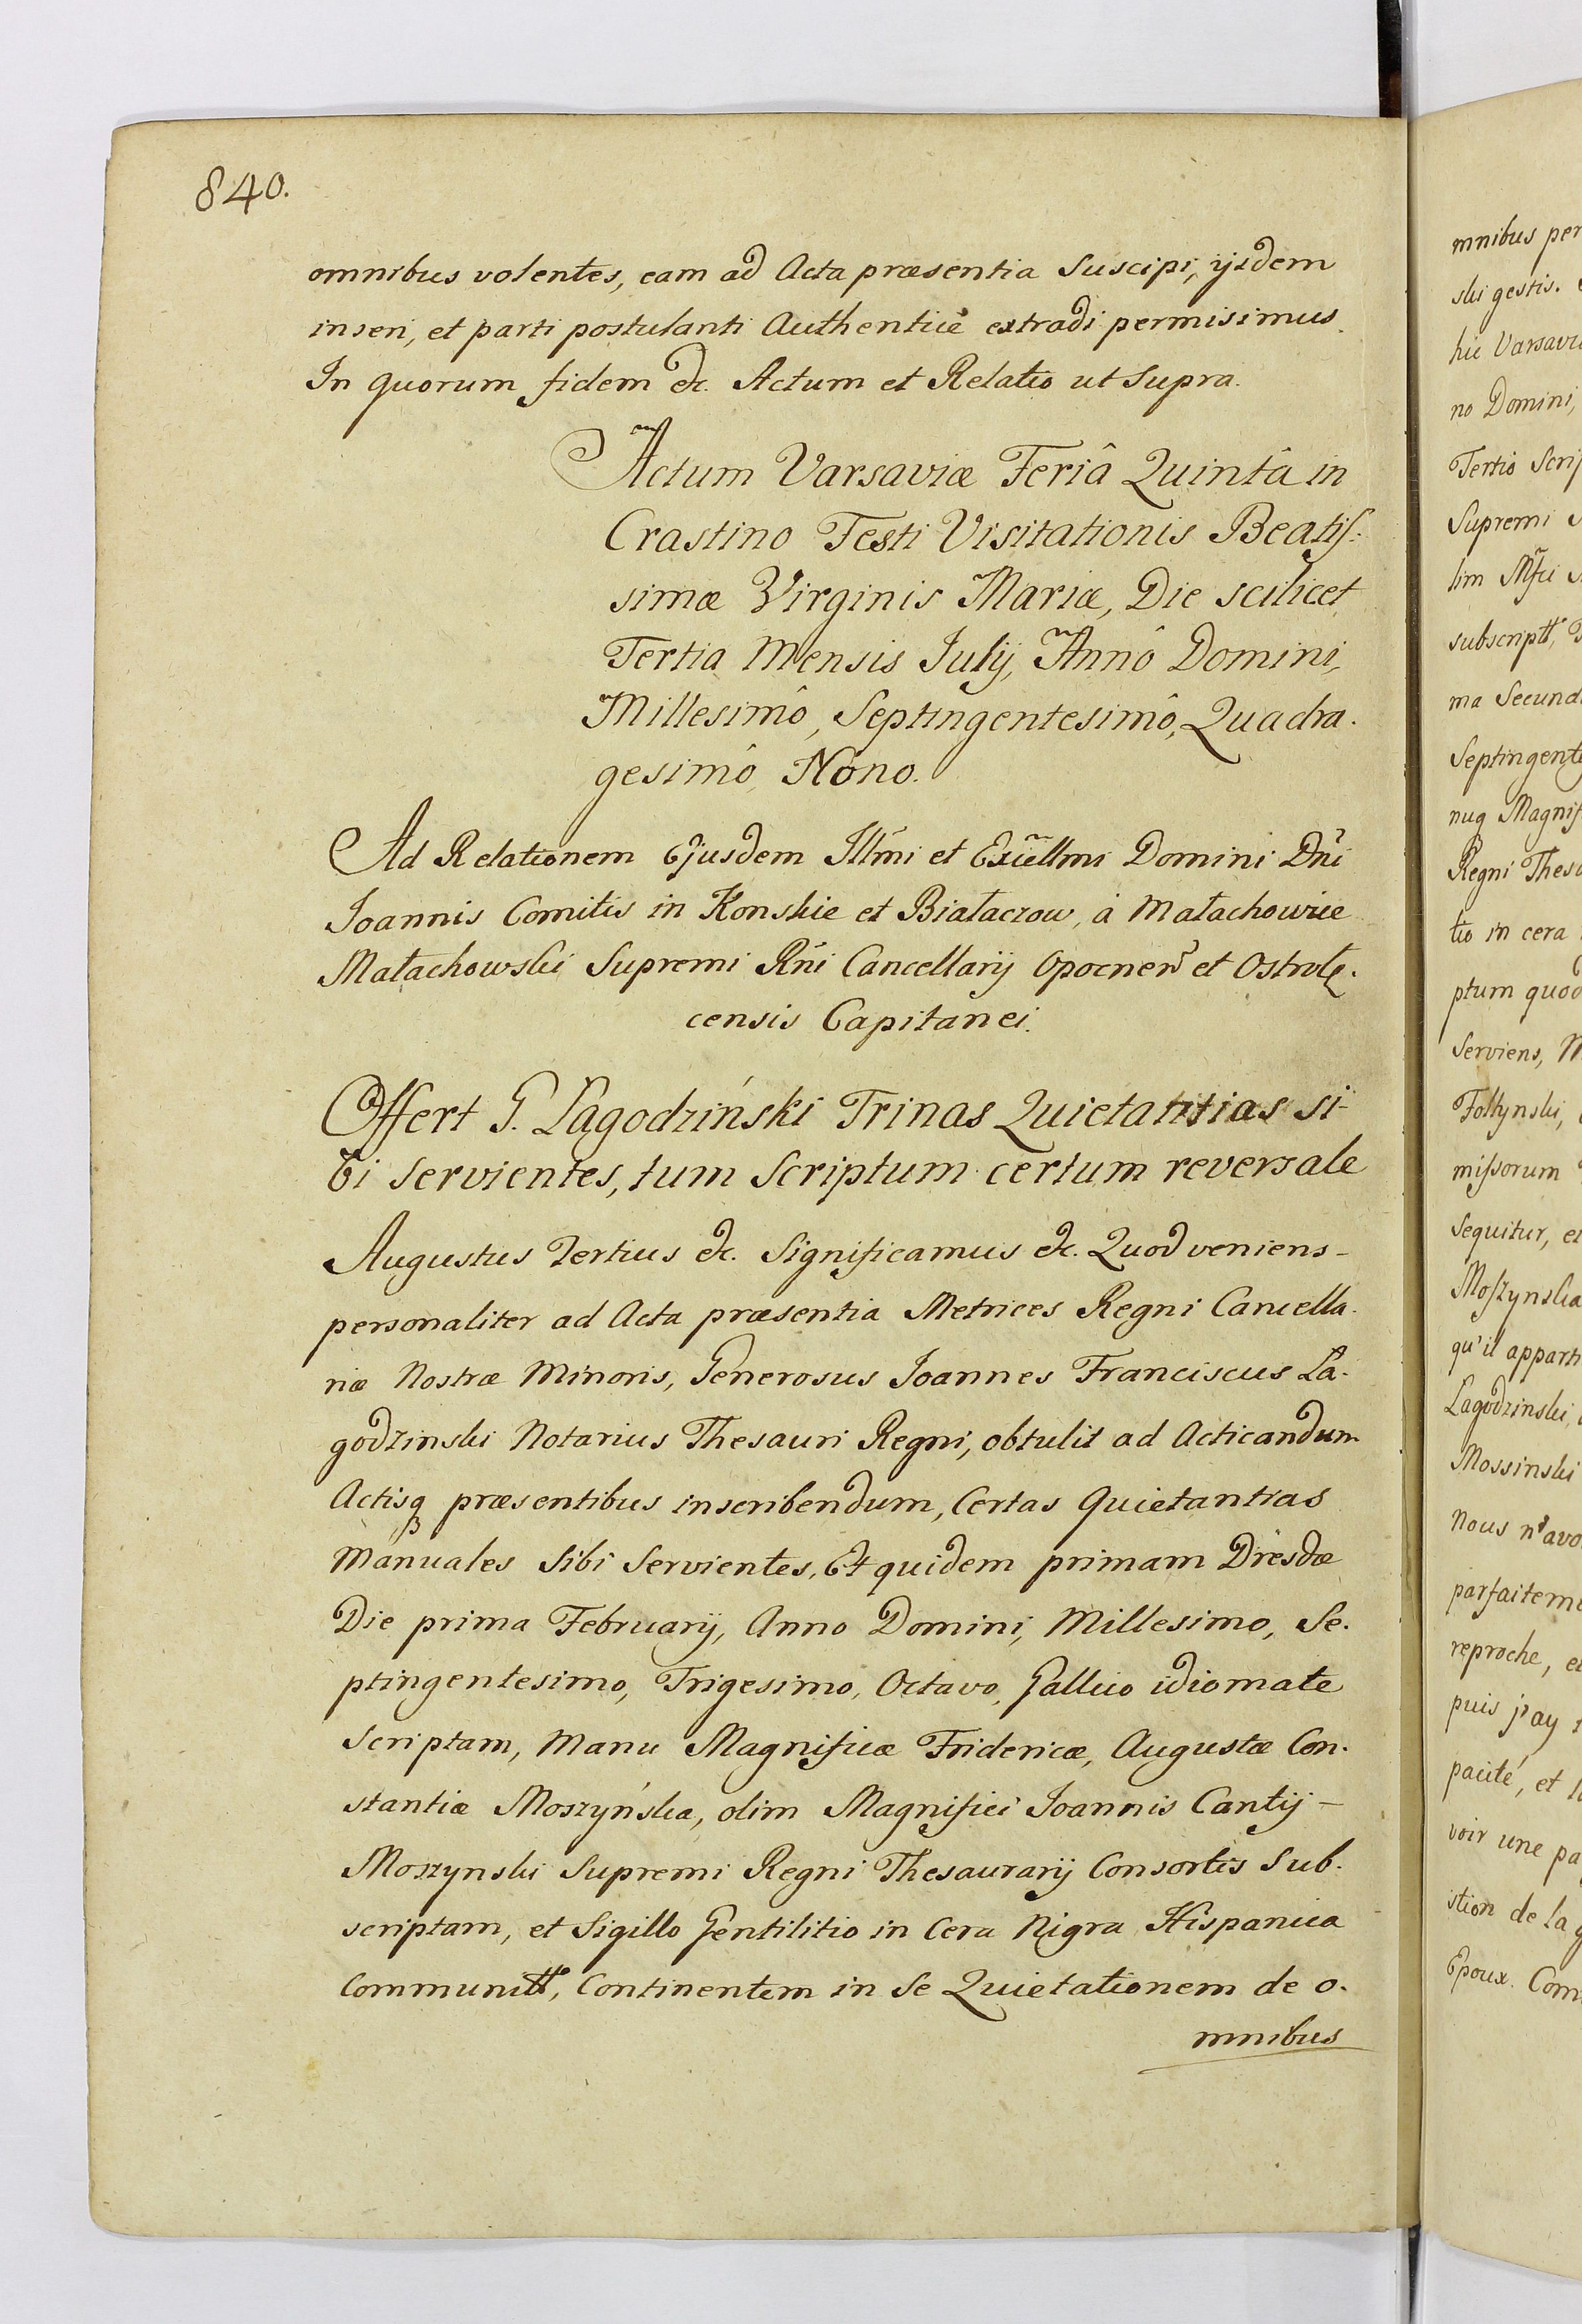 840.
omnibus volentes, eam ad Acta præsentia Suscipi, ijsdem
inseri, et parti postulanti Authenticè extradi permisimus.
In quorum fidem &c. Actum et Relatio ut Supra.
Actum Varsaviæ Feriâ Quintâ in
Crastino Festi Visitationis Beatiſ:
simæ Virginis Mariæ, Die scilicet
Tertia Mensis Iulij, Annô Domini,
Millesimô, Septingentesimô, Quadra.
gesimô, Nono.
Ad Relationem Ejusdem Illmi et Excellmi Domini Dni
Ioannis Comitis in Konskie et Białaczow, à Małachowice
Małachowski Supremi Rni Cancellarij Opocnen̄ et Ostrołę.
censis Capitanei.
Offert G. Łagodziński Trinas Quietantias si-
bi servientes, tum Scriptum certum reversale
Augustus Tertius &c. Significamus &c. Quod veniens-
personaliter ad Acta præsentia Metrices Regni Cancella.
riæ Nostræ Minoris, Generosus Ioannes Franciscus Ła.
godzinski Notarius Thesauri Regni, obtulit ad Acticandum
Actisq præsentibus inscribendum, Certas Quietantias
Manuales Sibi Servientes, Et quidem primam Dresdæ
Die prima Februarij, Anno Domini, Millesimo, Se.
ptingentesimo, Trigesimo, Octavo, Gallico idiomate
Scriptam, Manu Magnificæ Fridericæ, Augustæ Con.
stantiæ Moszyńska, olim Magnifici Ioannis Cantij -
Moszynski Supremi Regni Thesaurarij Consortis Sub.
scriptam, et Sigillo Gentilitio in Cera Nigra Hispanica
Communitt, Continentem in Se Quietationem de o.
mnibus
mnibus per
ski gestis.
hic Varsavi
no Domini,
Tertio Scrip
Supremi
lim Mfci
subscriptt,
ma Secund
Septingente
nuq Magnif
Regni Thesa
tio in cera
ptum quod
Serviens, M
Foltynski,
miſsorum
Sequitur, et
Moſzynska
qu'il apparti
Łagodzinski,
Mossinski
Nous n'avo
parfaiteme
reproche, et
puis j'ay
pacité, et l
voir une pa
stion de la g
Epoux. Com